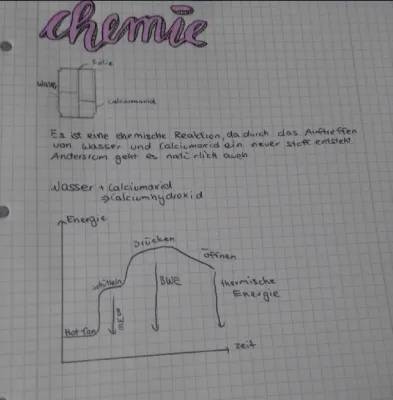 chemie
Folie
Wasser
Calciumoxid
Es ist eine chemische Reaktion, da durch das Auftreffen
von Wasser und Calciumoxid ein neuer stoff entsteht.
Andersrum geht es natürlich auch
Wasser + Calciumoxid
⇒ Calciumhydroxid
Energie
Drücken
öffnen
schütteln
BWE
thermische
Energie
Hot Can
zeit